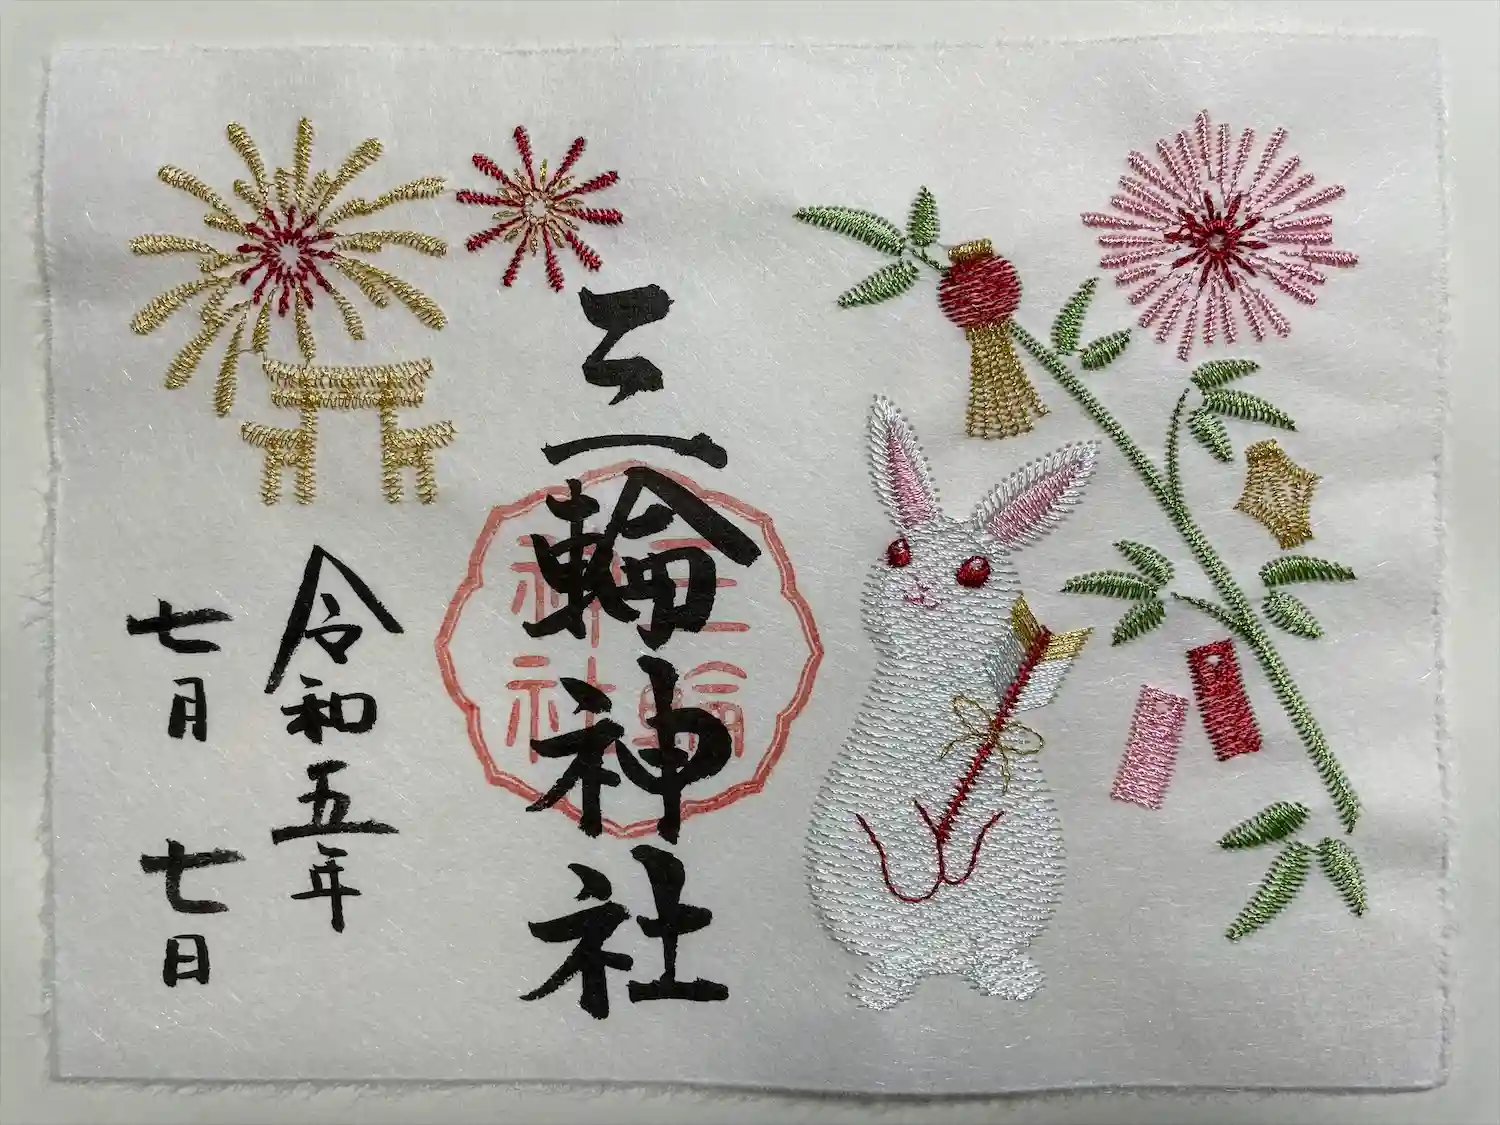 三輪神社
三輪
神社
令和五年
七月七日